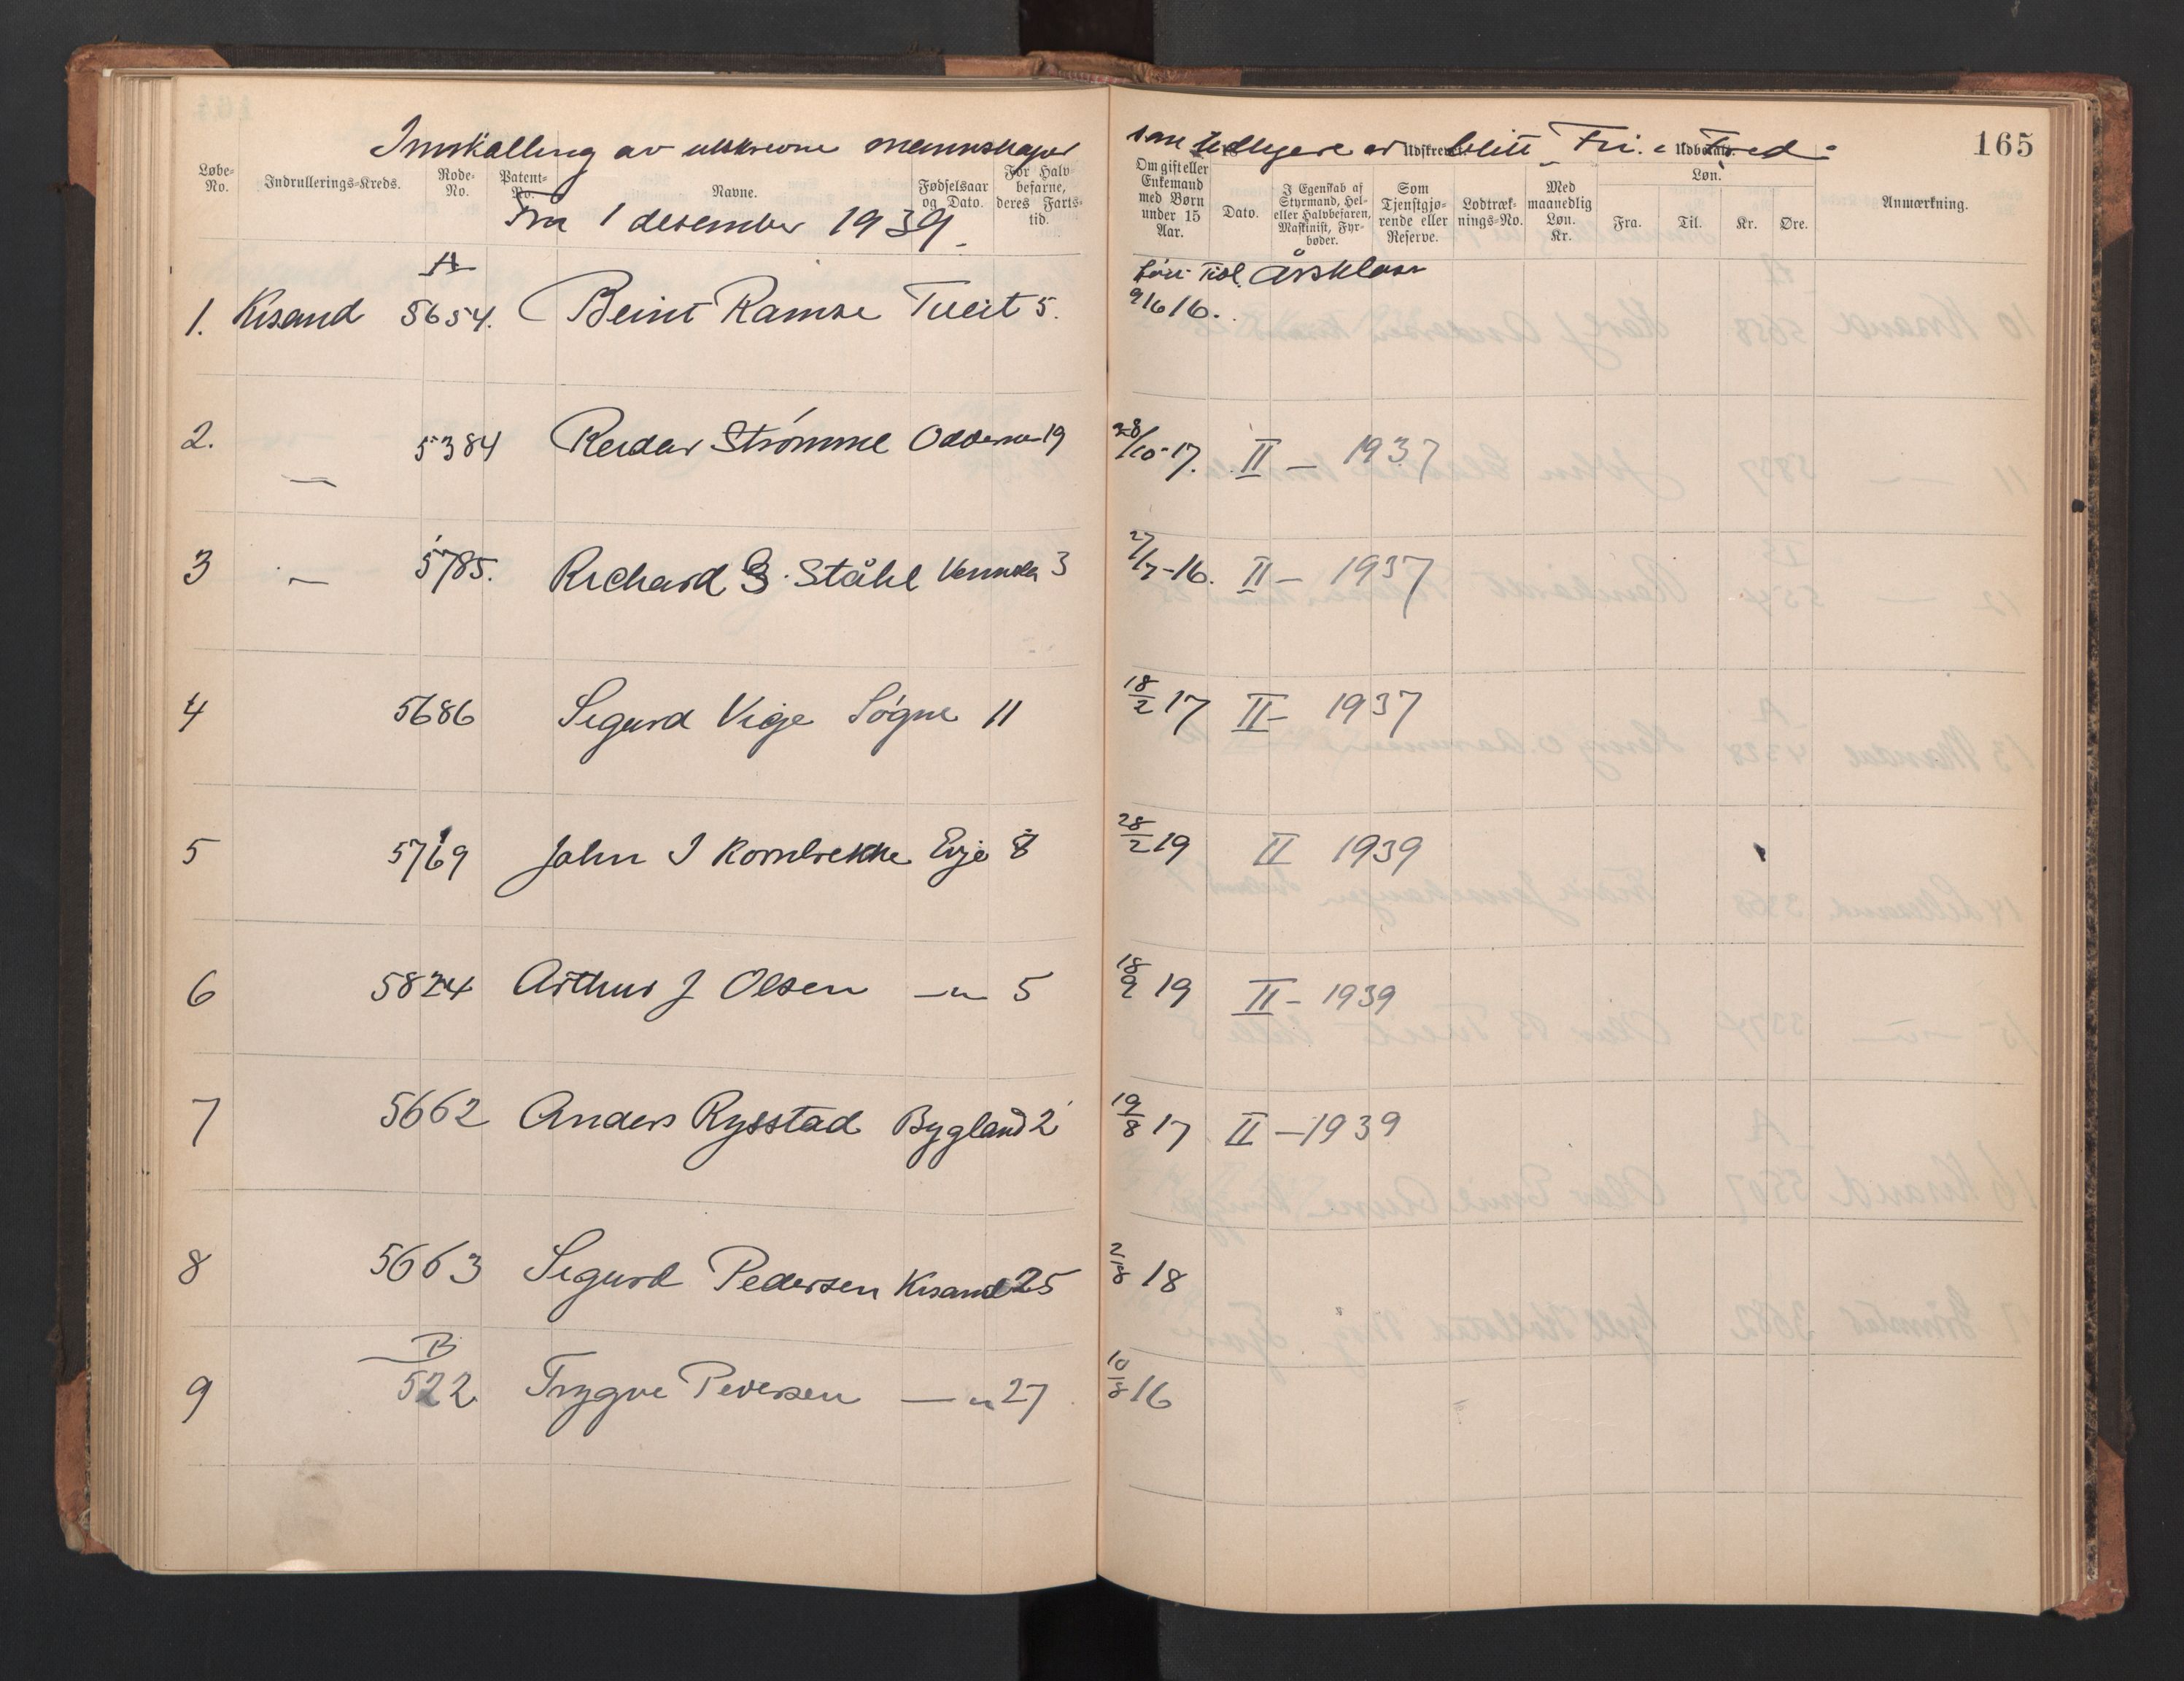 Innkalling av utskrevne mannskaper som tidligere er blitt "Fri i Fred"
fra 1 desember 1939.
165
Løbe-No.
Indrullerings-Kreds.
Rode-No.
Patent-No.
Navne.
Fødselsaar og Dato.
For Halvbefarne, deres Fartstid.
Om gift eller Enkemand med Børn under 15 Aar.
Udskreven.
Dato.
I Egenskab af Styrmand, Hel- eller Halvbefaren, Maskinist, Fyrbøder.
Som Tjenstgjørende eller Reserve.
Lodtræknings-No.
Med maanedlig Løn. Kr.
Udbetalt.
Løn.
Fra.
Til.
Kr.
Øre.
Anmærkning.
født Årsklasse
A
1. Krsand 5654. Beint Ramse Tveit 5. 9/6 16.
2. — 5384 Reidar Strømme Oddernes 19 28/10-17. II — 1937
3 — 5785. Richard G. Ståhl Vennesla 3 27/7-16. II — 1937
4 5686 Sigurd Vige Søgne 11 18/2 17 II — 1937
5 5769 John I Kornbrekke Evje 8 28/2 19 II 1939
6 5824 Arthur J Olsen —"— 5 18/9 19 II — 1939
7 5662 Anders Rysstad Bygland 2 19/8 17 II — 1939
8 5663 Sigurd Pedersen Krsand 25 2/8 18
B
9 522 Trygve Pedersen —"— 27 10/8 16